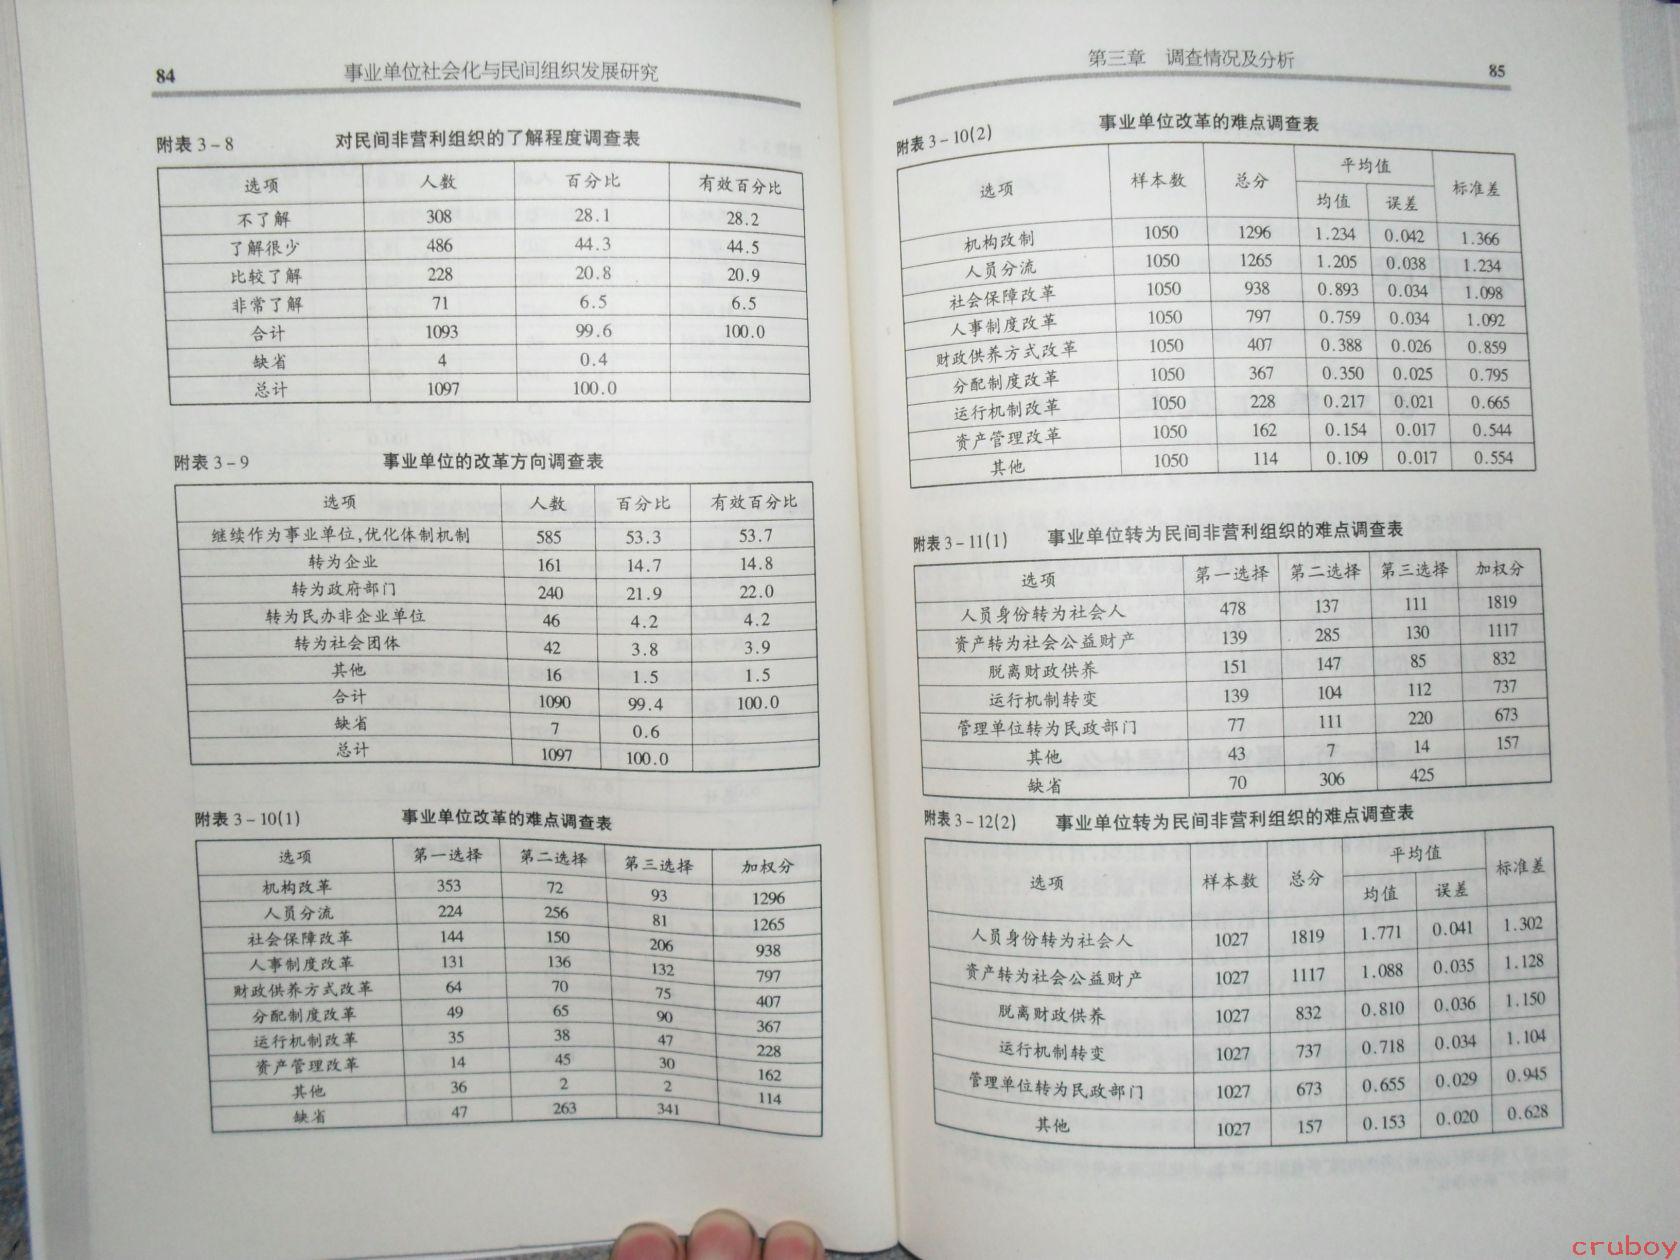 84 事业单位社会化与民间组织发展研究
附表 3-8 对民间非营利组织的了解程度调查表
选项 人数 百分比 有效百分比
不了解 308 28.1 28.2
了解很少 486 44.3 44.5
比较了解 228 20.8 20.9
非常了解 71 6.5 6.5
合计 1093 99.6 100.0
缺省 4 0.4
总计 1097 100.0
附表 3-9 事业单位的改革方向调查表
选项 人数 百分比 有效百分比
继续作为事业单位,优化体制机制 585 53.3 53.7
转为企业 161 14.7 14.8
转为政府部门 240 21.9 22.0
转为民办非企业单位 46 4.2 4.2
转为社会团体 42 3.8 3.9
其他 16 1.5 1.5
合计 1090 99.4 100.0
缺省 7 0.6
总计 1097 100.0
附表 3-10(1) 事业单位改革的难点调查表
选项 第一选择 第二选择 第三选择 加权分
机构改革 353 72 93 1296
人员分流 224 256 81 1265
社会保障改革 144 150 206 938
人事制度改革 131 136 132 797
财政供养方式改革 64 70 75 407
分配制度改革 49 65 90 367
运行机制改革 35 38 47 228
资产管理改革 14 45 30 162
其他 36 2 2 114
缺省 47 263 341
第三章 调查情况及分析 85
附表 3-10(2) 事业单位改革的难点调查表
选项 样本数 总分 平均值 标准差
均值 误差
机构改制 1050 1296 1.234 0.042 1.366
人员分流 1050 1265 1.205 0.038 1.234
社会保障改革 1050 938 0.893 0.034 1.098
人事制度改革 1050 797 0.759 0.034 1.092
财政供养方式改革 1050 407 0.388 0.026 0.859
分配制度改革 1050 367 0.350 0.025 0.795
运行机制改革 1050 228 0.217 0.021 0.665
资产管理改革 1050 162 0.154 0.017 0.544
其他 1050 114 0.109 0.017 0.554
附表 3-11(1) 事业单位转为民间非营利组织的难点调查表
选项 第一选择 第二选择 第三选择 加权分
人员身份转为社会人 478 137 111 1819
资产转为社会公益财产 139 285 130 1117
脱离财政供养 151 147 85 832
运行机制转变 139 104 112 737
管理单位转为民政部门 77 111 220 673
其他 43 7 14 157
缺省 70 306 425
附表 3-12(2) 事业单位转为民间非营利组织的难点调查表
选项 样本数 总分 平均值 标准差
均值 误差
人员身份转为社会人 1027 1819 1.771 0.041 1.302
资产转为社会公益财产 1027 1117 1.088 0.035 1.128
脱离财政供养 1027 832 0.810 0.036 1.150
运行机制转变 1027 737 0.718 0.034 1.104
管理单位转为民政部门 1027 673 0.655 0.029 0.945
其他 1027 157 0.153 0.020 0.628
cruboy